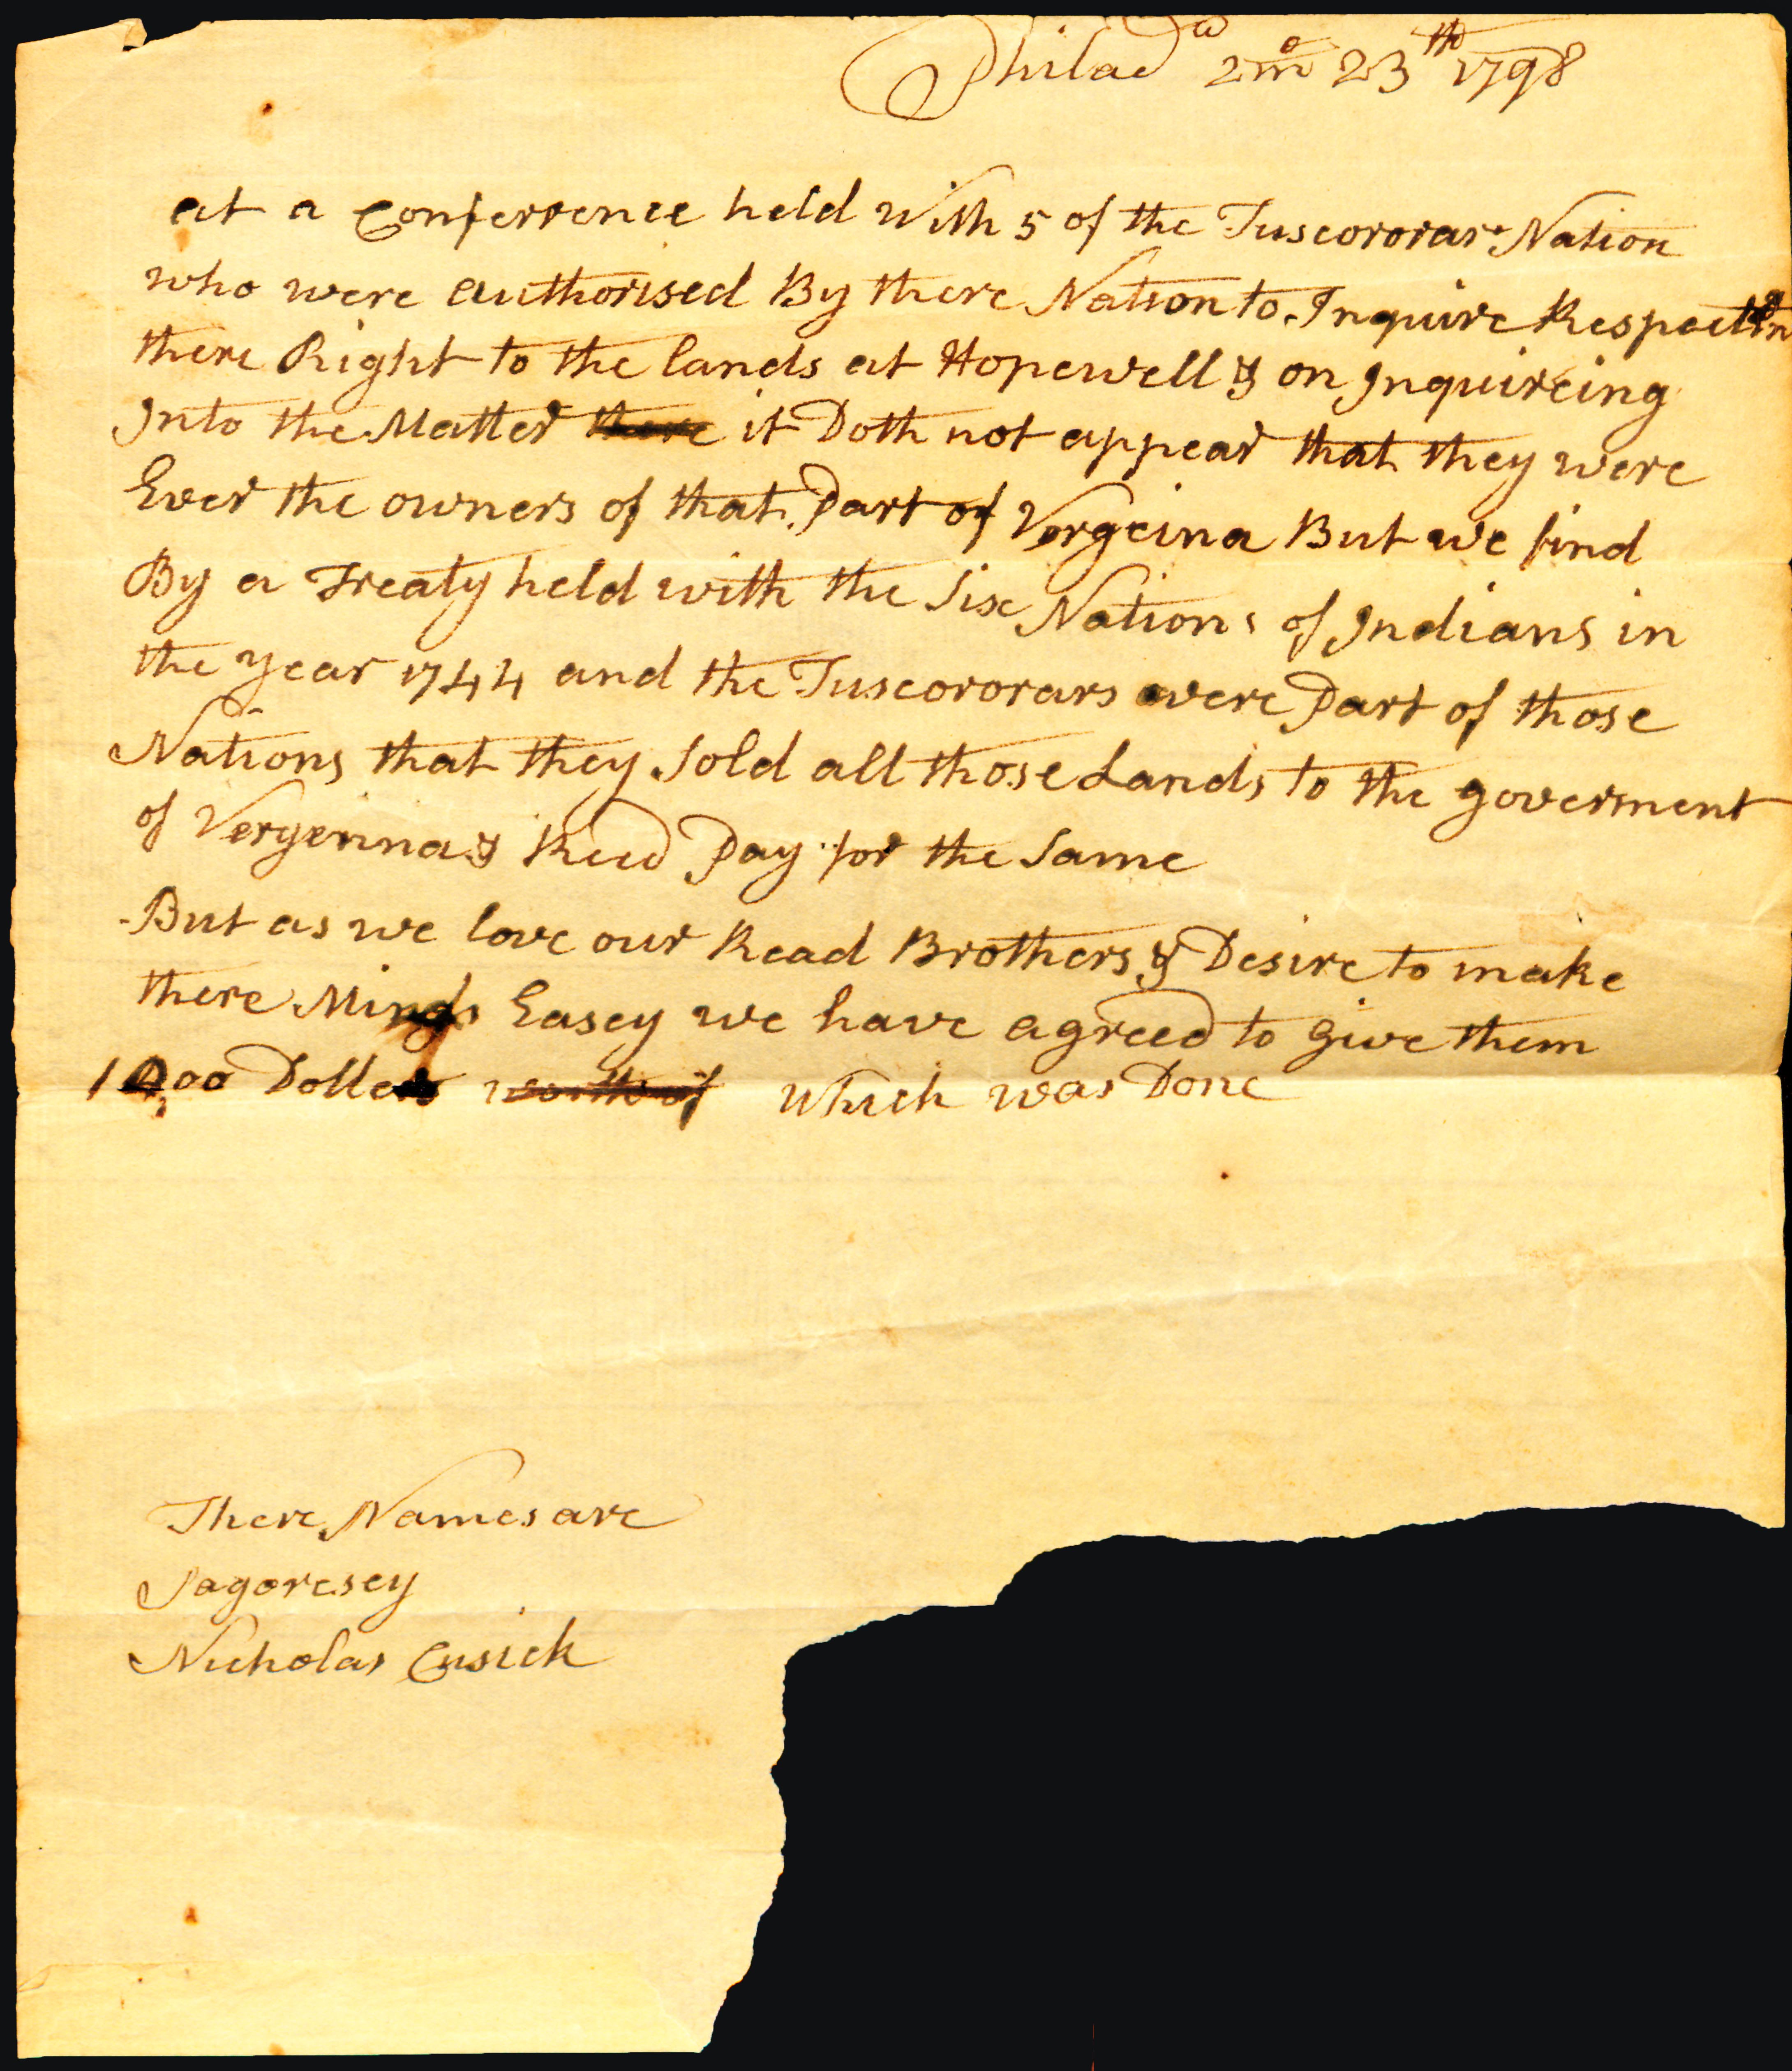 Philad^a 2m^o 23^th 1798
at a Conferrence held with 5 of the Tuscororar Nation
who were authorised By there Nation to Inquire Respecting
there Right to the lands at Hopewell & on Inquireing
Into the Matter there it Doth not appear that they were
Ever the owners of that Part of Vergeina But we find
By a Treaty held with the Six Nations of Indians in
the year 1744 and the Tuscororars were Part of those
Nations that they Sold all those Lands to the goverment
of Vergeinna & Recd Pay for the Same
But as we love our Read Brothers & Desire to make
there Minds Easey we have agreed to give them
Dollers worth of which was Done
There Names are
Sagoresey
Nicholas Cusick